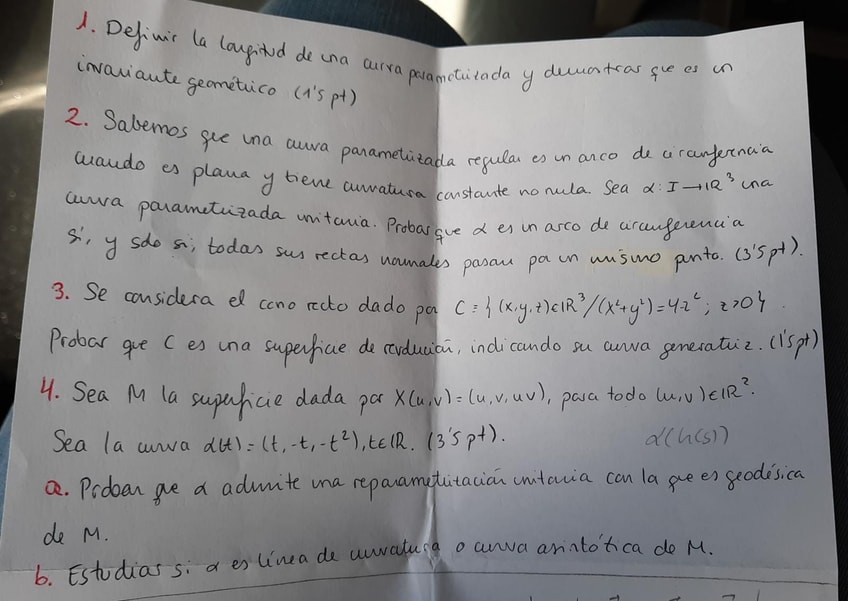 1. Definir la longitud de una curva parametrizada y demostras que es un
invariante geométrico (1'5 pt)
2. Sabemos que una curva parametrizada regular es un arco de circunferencia
cuando es plana y tiene curvatura constante no nula. Sea α: I → ℝ³ una
curva parametrizada unitaria. Probar que α es un arco de circunferencia
si, y solo si, todas sus rectas normales pasan por un mismo punto. (3'5 pt).
3. Se considera el cono recto dado por C = { (x,y,z) ∈ ℝ³ / (x²+y²) = 4z² ; z>0 }.
Probar que C es una superficie de revolución, indicando su curva generatriz. (1'5 pt)
4. Sea M la superficie dada por X(u,v) = (u,v,uv), para todo (u,v) ∈ ℝ².
Sea la curva α(t) = (t, -t, -t²), t∈ℝ. (3'5 pt). α(h(s))
a. Probar que α admite una reparametrización unitaria con la que es geodésica
de M.
b. Estudias si α es línea de curvatura o curva asintótica de M.